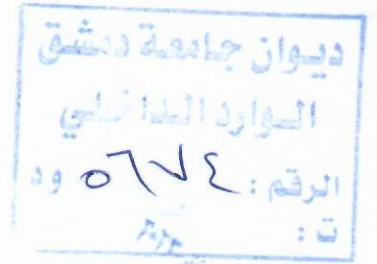 ديوان جامعة دمشق
الوارد الداخلي
الرقم : ٥٦٧٤ ود
ت :